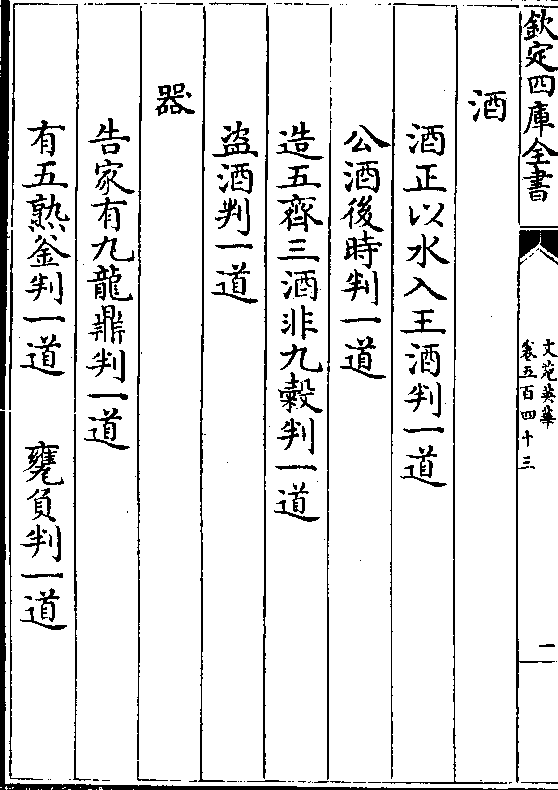 欽定四庫全書
文苑英華
卷五百四十三
二
酒
酒正以水入王酒判一道
公酒後時判一道
造五齊三酒非九穀判一道
盜酒判一道
器
告家有九龍鼎判一道
有五熟釜判一道 甕負判一道